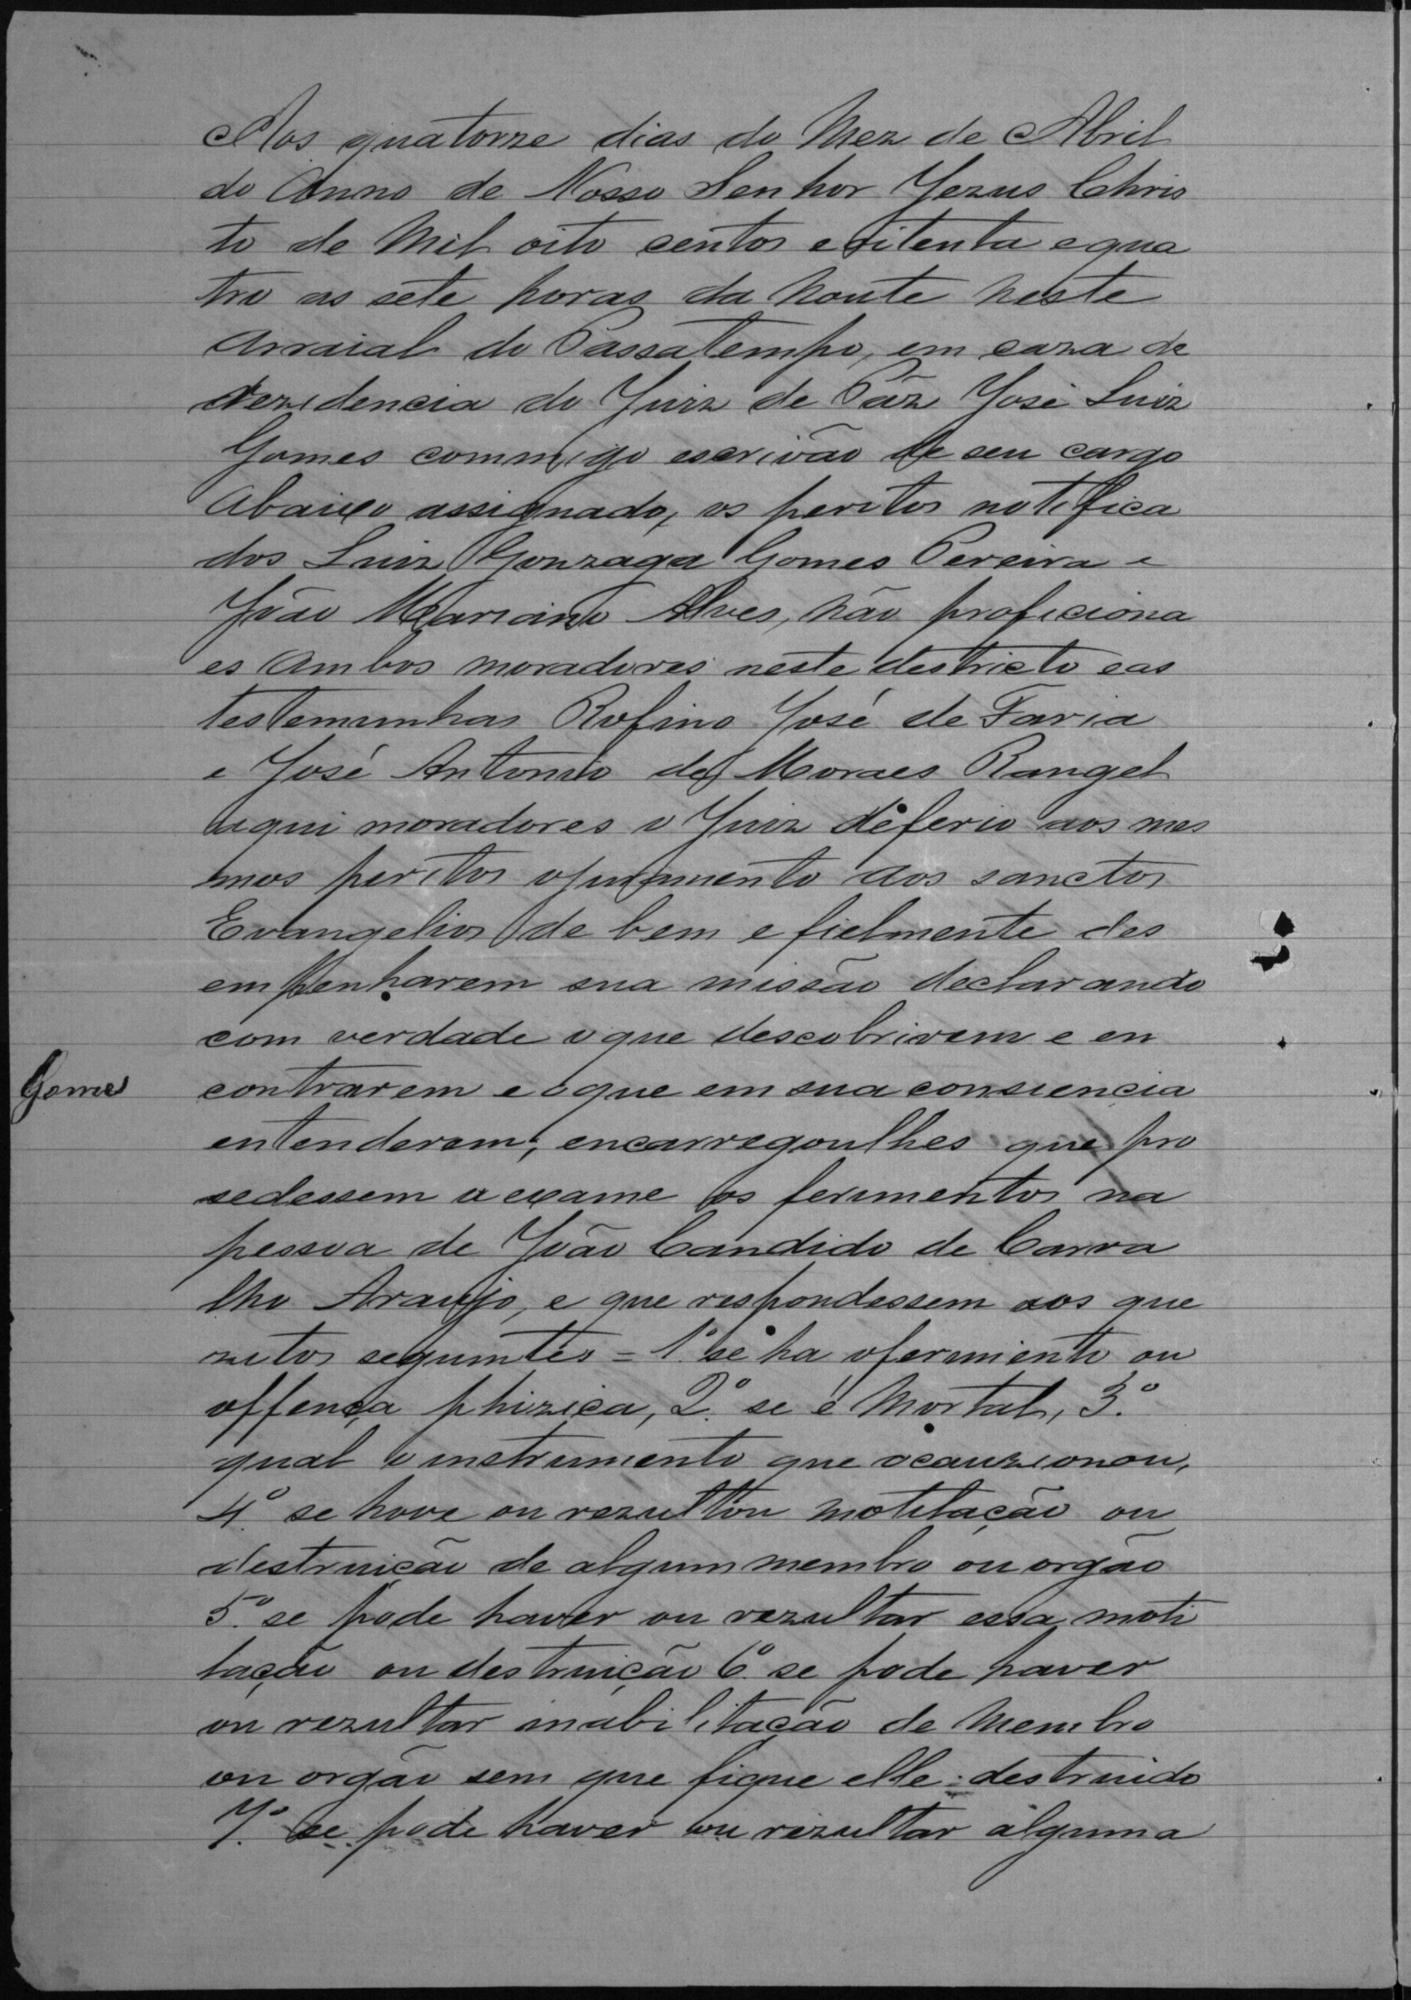 Aos quatorze dias do Mez de Abril
do Anno de Nosso Senhor Yezus Chris
to de Mil oito centos e oitenta e qua
tro as sete horas da noute neste
arraial do Passatempo, em caza de
rezidencia do Juiz de Páz José Luiz
Gomes commigo escrivão de seu cargo
abaixo assignado, os peritos notifica
dos Luiz Gonzaga Gomes Pereira e
João Marciano Alves, não proficiona
es ambos moradores neste destricto eas
testemunhas Rofino José de Faria
e José Antonio de Moraes Rangel
aqui moradores o Juiz deferio aos mes
mos peritos ojuramento aos sanctos
Evangelios de bem e fielmente des
empenharem sua missão declarando
com verdade oque descobrirem e en
Gomes
contrarem e oque em sua consiencia
entenderem; encarregoulhes que pro
sedessem a exame os ferimentos na
pessoa de João Candido de Carva
lho Araujo, e que respondessem aos que
zitos seguintes = 1º se ha oferimento ou
offença phizica, 2º se é Mortal, 3º
qual o instrumento que ocauzionou,
4º se hove ou rezultou motilação ou
destruição de algum membro ou orgão
5º se pode haver ou rezultar essa moti
lação ou destruição 6º se pode haver
ou rezultar inabilitação de Membro
ou orgão sem que fique elle destruido
7º se pode haver ou rezultar alguma